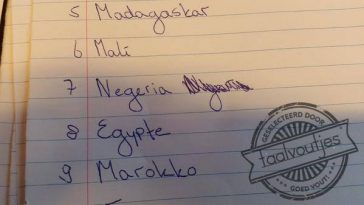 5 Madagaskar
6 Mali
7 Negeria
8 Egypte
9 Marokko
GESELECTEERD DOOR
taalvoutjes
GOED VOUT